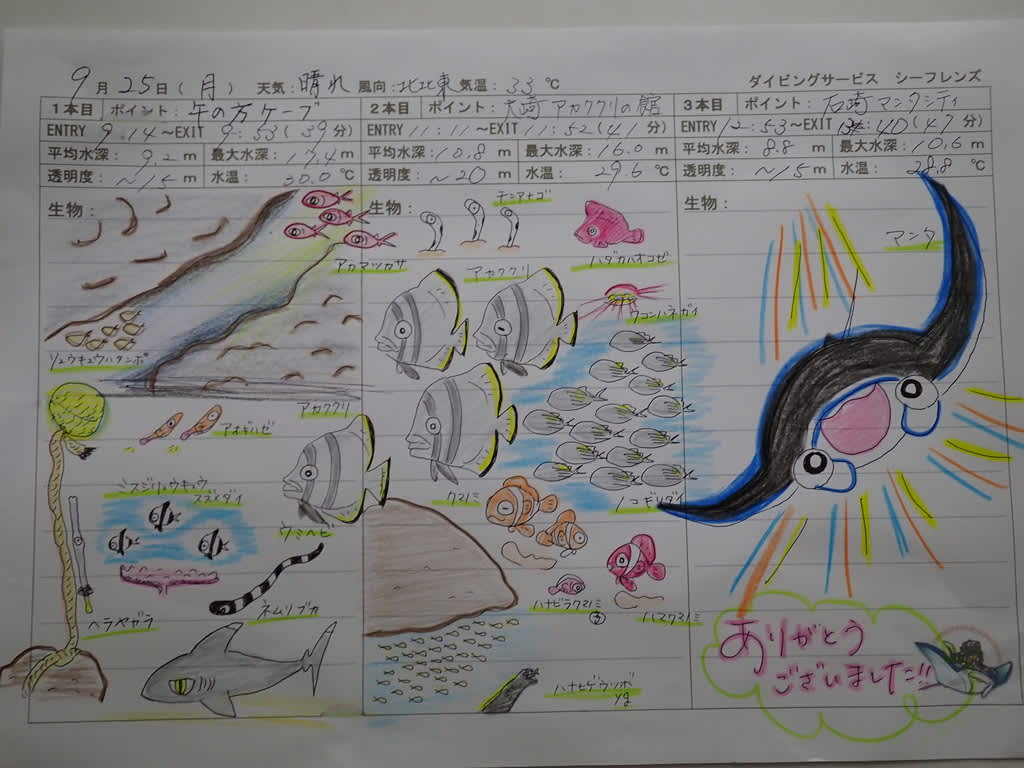 9月25日(月) 天気:晴れ 風向:北北東 気温:33℃
ダイビングサービス シーフレンズ
1本目 ポイント:午の方ケーブ
ENTRY 9:14～EXIT 9:53(39分)
平均水深:9.2m 最大水深:17.4m
透明度:～15m 水温:30.0℃
生物:
アカマツカサ
リュウキュウハタンポ
アカククリ
アオギハゼ
ミスジリュウキュウ
スズメダイ
ウミヘビ
ヘラヤガラ
ネムリブカ
2本目 ポイント:大崎アカククリの館
ENTRY 11:11～EXIT 11:52(41分)
平均水深:10.8m 最大水深:16.0m
透明度:～20m 水温:29.6℃
生物:
チンアナゴ
ハダカハオコゼ
アカククリ
ウコンハネガイ
ノコギリダイ
クマノミ
ハナビラクマノミ
ハマクマノミ
ハナヒゲウツボ
yg
3本目 ポイント:石崎マンタシティ
ENTRY 12:53～EXIT 13:40(47分)
平均水深:8.8m 最大水深:10.6m
透明度:～15m 水温:28.8℃
生物:
マンタ
ありがとう
ございました!!